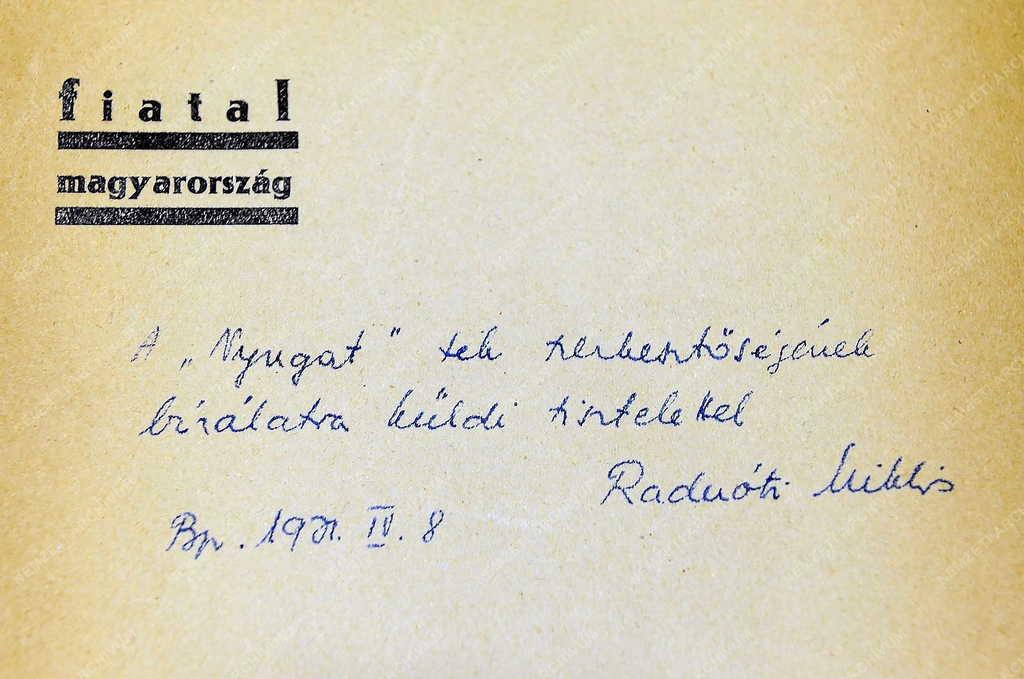 fiatal
magyarország
A „Nyugat” tek szerkesztőségének
bírálatra küldi tisztelettel
Radnóti Miklós
Bp. 1931. IV. 8